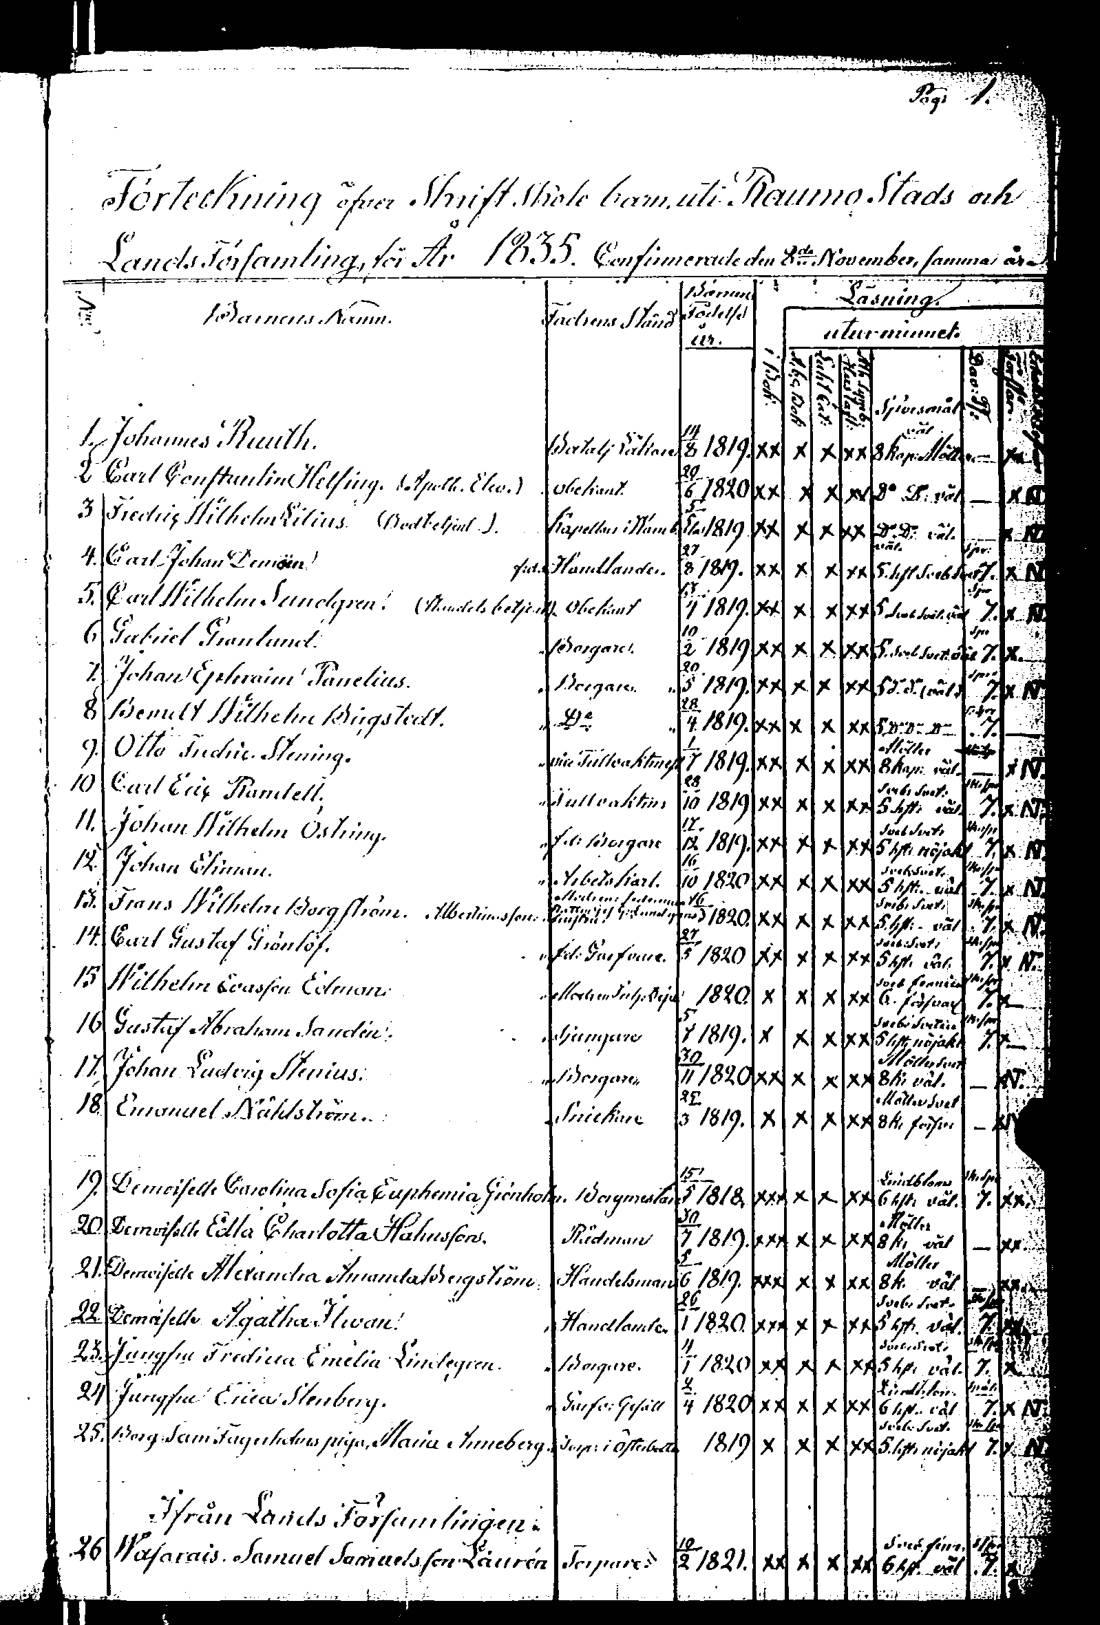 Pag: 1.
Förteckning öfver Skrift Skole barn, uti Raumo Stads och
Lands Församling, för År 1835. Confirmerade den 8de November, samma år
No: Barnens Namn. Fadrens Stånd Barnens Födelse år. Läsning.
i Bok: utur minnet.
Abc Bok Spörsmål
1. Johannes Ruuth. Batalj Läkare 14/8 1819. xx x x xx 8 kap: Möller väl — xx
2 Carl Constantin Helsing. (Apoth. Elev.) obekant 20/6 1820 xx x x xx Do Do väl — x N
3 Fredric Wilhelm Lilius. (Bodbetjent.) Kapellan i 1819 xx x x xx D. D. väl. — x N
4. Carl Johan Handlande. 27/8 1819. xx x x xx 5. hft Sveb Svet väl. 7. x N
5. Carl Wilhelm Sundgren. (Handels betjent) obekant 1819. xx x x xx 5. Sveb Svet. väl 7. x N
6 Gabriel Grönlund. Borgare. 10/2 1819 xx x x xx 5. Sveb Svet. väl 7. x
7. Johan Ephraim Panelius. Borgare. 20/5 1819. xx x x xx 5 D. D. (väl) 7. x N
8 Wilhelm Do 28/4 1819. xx x x xx 5 D. D. D. 7. —
9. Otto Fredric Stening. vice Tullvaktmest 1/7 1819. xx x x xx Möller 8 kap: väl — x N.
10 Carl Eric Randell. Tullvaktm 28/10 1819 xx x x xx Sveb: Svet: 5 hft: väl. 7. x N.
11. Johan Wilhelm Östring. fd: Borgare 17/12 1819. xx x x xx Sveb Svet: 5 hft: nöjakt 7. x N
12. Johan Ehman. Arbetskarl. 16/10 1820 xx x x xx Sveb Svet: 5 hft. väl 7. x N
13. Frans Wilhelm Borgström. Albertinus son. 1820. xx x x xx Sveb: Svet: 5 hft. väl 7. x N
14. Carl Gustaf Grönlöf. fd: Garfvare. 27/5 1820 xx x x xx Sveb: Svet: 5 hft. väl. 7. x N.
15 Wilhelm Evasson Edman. 1820. x x x xx 6. försvar 7. x
16 Gustaf Abraham Sandén. 5/7 1819. x x x xx 5 hft nöjakt 7. x
17. Johan Ludvig Stenius. Borgare. 30/11 1820 xx x x xx Möller Svet 8 k: väl. — x N.
18. Emanuel Nählström. Snickare 25/3 1819. x x x xx Möller Svet 8 k: försvar — x N
19. Demoiselle Carolina Sofia Euphemia Grönholm. Borgmestare 15/5 1818. xxx x x xx Lindbloms 6 hft: väl. 7. xx.
20 Demoiselle Edla Charlotta Rådman 30/7 1819. xxx x x xx Möller 8 k: väl — xx.
21. Demoiselle Alexandra Amanda Bergström Handelsman 1819. xxx x x xx Möller 8 k. väl — xx.
22 Demoiselle Agatha Ilvan. Handlande. 26/1 1820. xxx x x xx Sveb: Svet: 5 hft. väl. 7. xx
23. Jungfru Fredrica Emelia Lindegren. Borgare. 4/1 1820 xx x x xx Sveb: Svet: 5 hft: väl. 7. x
24 Jungfru Erica Stenberg. Garfve: Gesäll 1820 xx x x xx Lindblom. 6 hft. väl 7. x N
25. Borg: Sam: Fagerholms piga, Maria Anneberg. Torp: i Österbotten 1819 x x x xx Sveb: Svet: 5. hft: nöjakt 7. x N
Ifrån Lands Församlingen.
26 Wasarais. Samuel Samuelsson Laurén Torpare 10/2 1821. xx x x xx Sveb: finn. 6 hft. väl 7. x